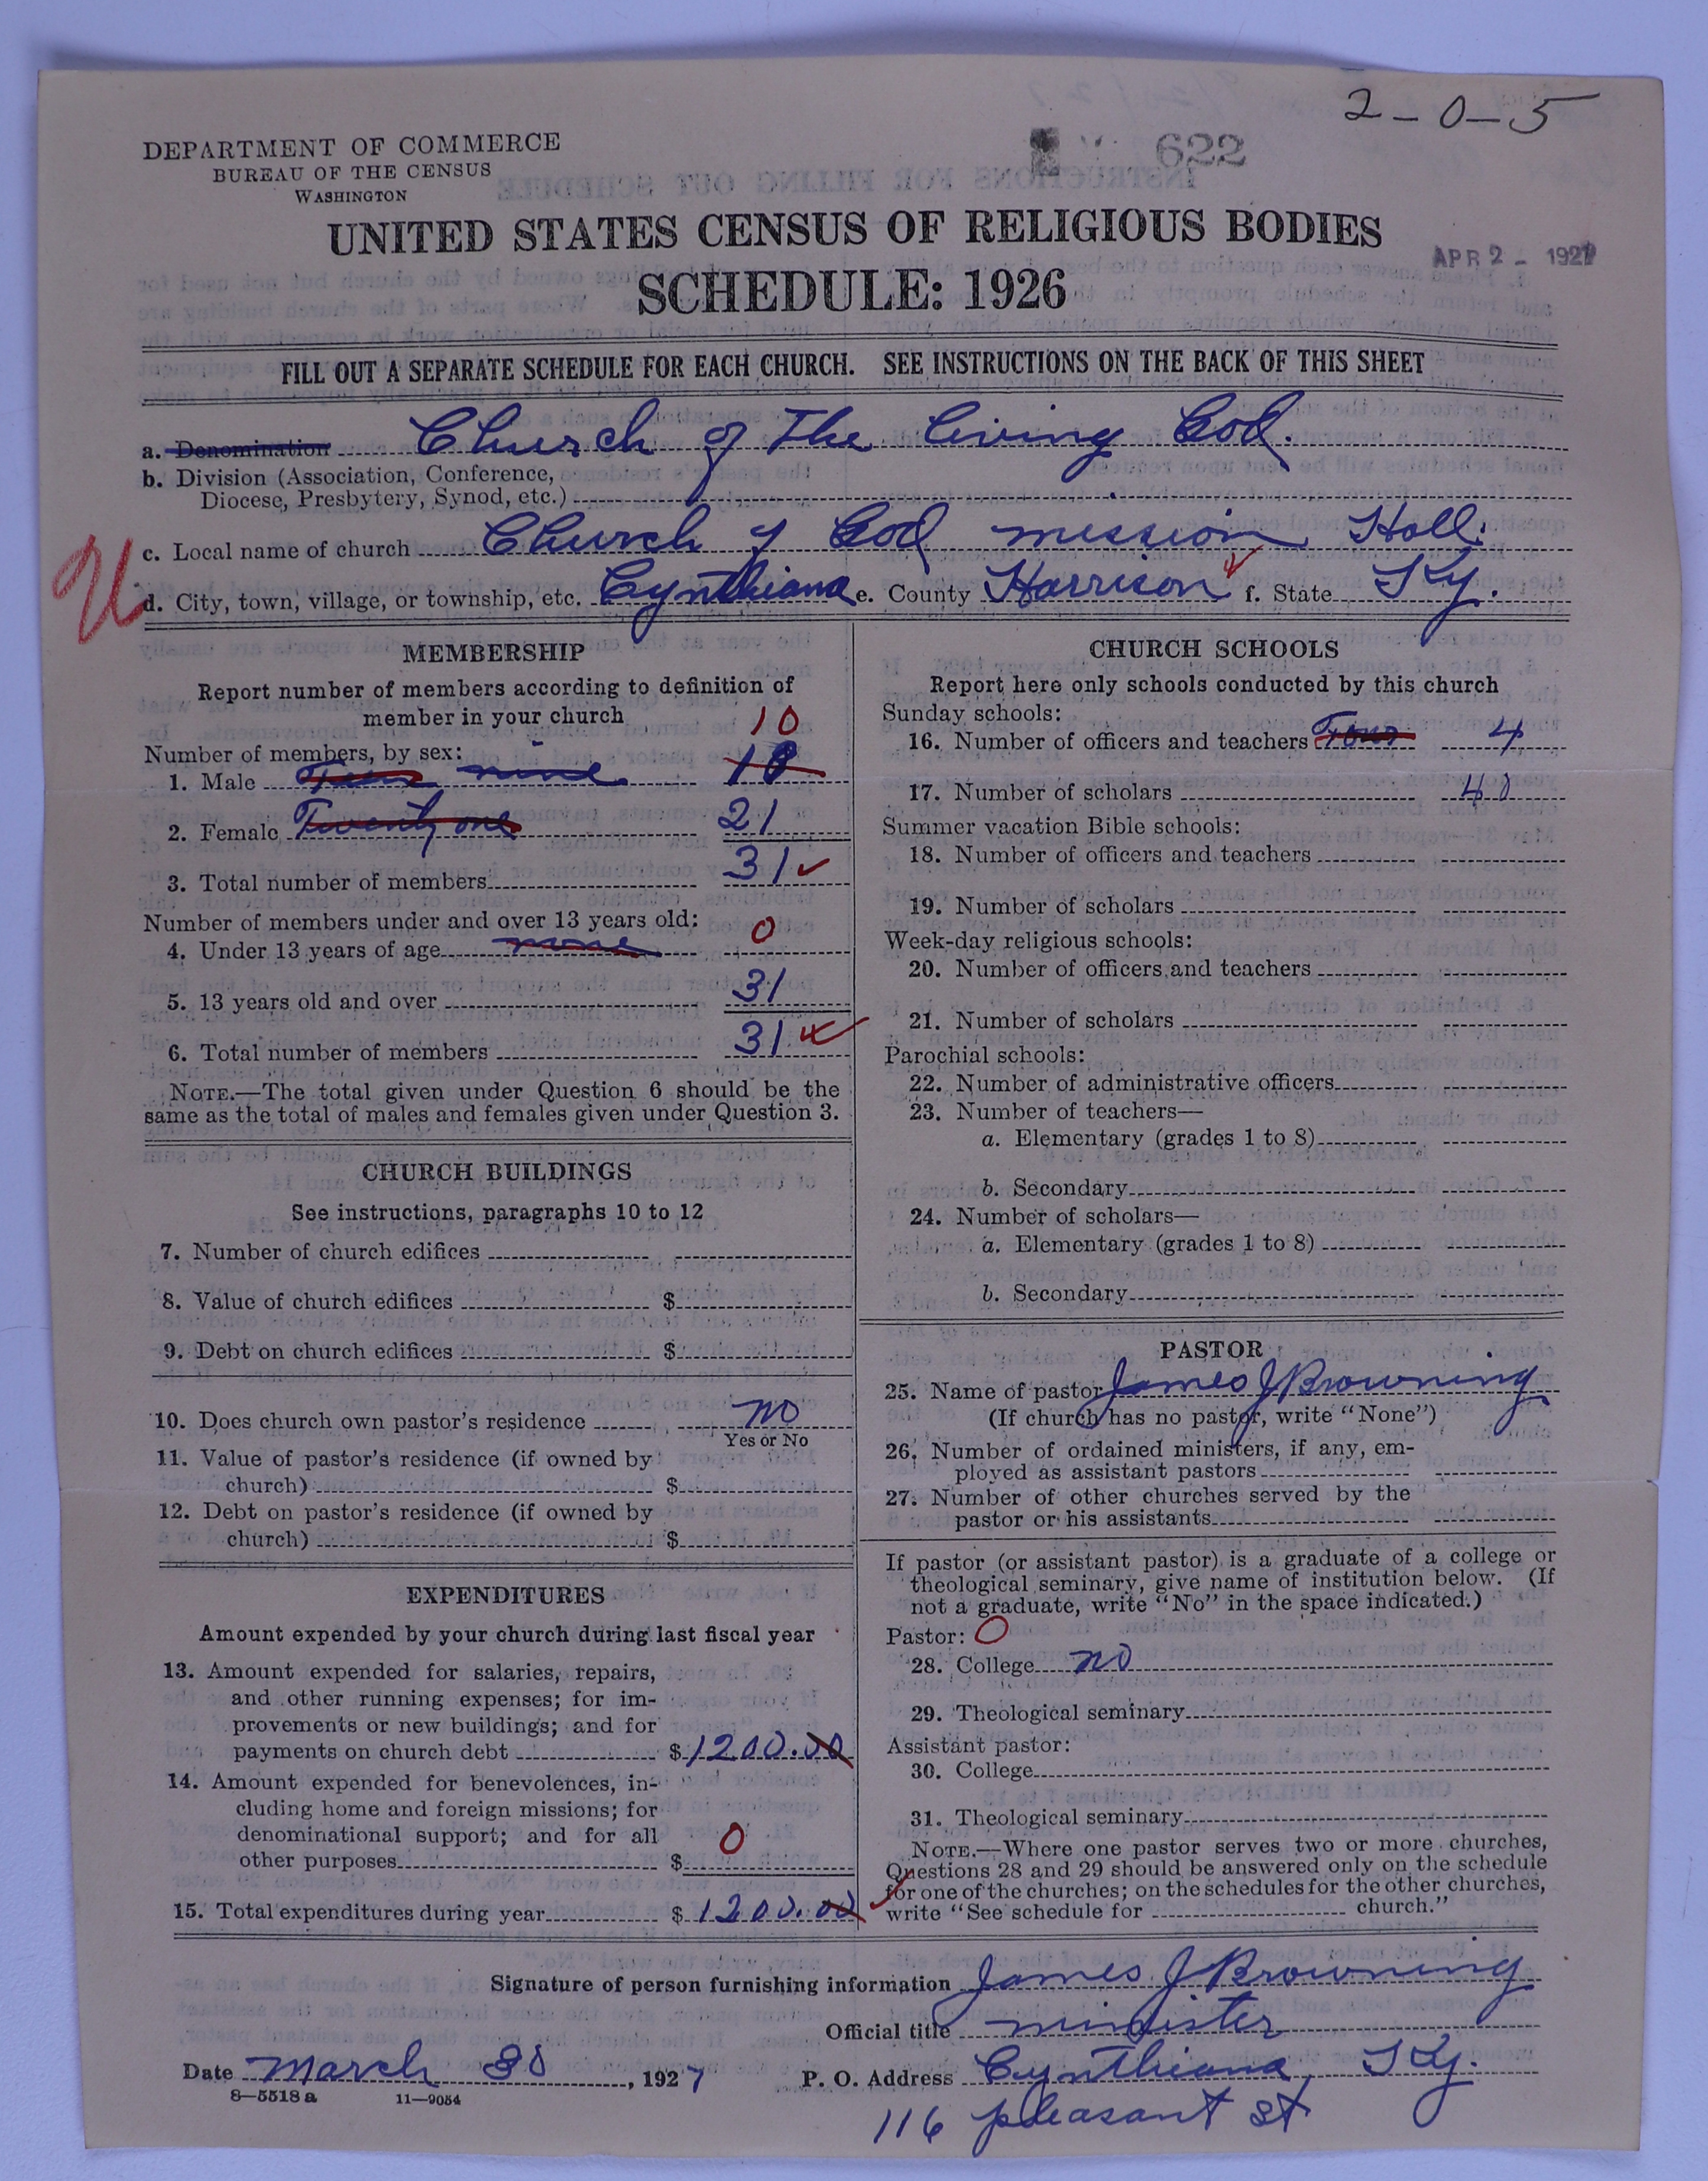 2-0-5
DEPARTMENT OF COMMERCE
BUREAU OF THE CENSUS
WASHINGTON
622
UNITED STATES CENSUS OF RELIGIOUS BODIES
SCHEDULE: 1926
APR 2 - 1927
FILL OUT A SEPARATE SCHEDULE FOR EACH CHURCH. SEE INSTRUCTIONS ON THE BACK OF THIS SHEET
a. Denomination Church of The Living God.
b. Division (Association, Conference,
Diocese, Presbytery, Synod, etc.)
c. Local name of church Church of God mission Hall.
d. City, town, village, or township, etc. Cynthiana e. County Harrison f. State Ky.
MEMBERSHIP
Report number of members according to definition of
member in your church 10
Number of members, by sex:
1. Male nine 10
2. Female Twenty one 21
3. Total number of members 31
Number of members under and over 13 years old:
4. Under 13 years of age none 0
5. 13 years old and over 31
6. Total number of members 31
NOTE.—The total given under Question 6 should be the
same as the total of males and females given under Question 3.
CHURCH BUILDINGS
See instructions, paragraphs 10 to 12
7. Number of church edifices
8. Value of church edifices $
9. Debt on church edifices $
10. Does church own pastor's residence no
Yes or No
11. Value of pastor's residence (if owned by
church) $
12. Debt on pastor's residence (if owned by
church) $
EXPENDITURES
Amount expended by your church during last fiscal year
13. Amount expended for salaries, repairs,
and other running expenses; for im-
provements or new buildings; and for
payments on church debt $ 1200.00
14. Amount expended for benevolences, in-
cluding home and foreign missions; for
denominational support; and for all
other purposes $ 0
15. Total expenditures during year $ 1200.00
CHURCH SCHOOLS
Report here only schools conducted by this church
Sunday schools:
16. Number of officers and teachers Four 4
17. Number of scholars 40
Summer vacation Bible schools:
18. Number of officers and teachers
19. Number of scholars
Week-day religious schools:
20. Number of officers and teachers
21. Number of scholars
Parochial schools:
22. Number of administrative officers
23. Number of teachers—
a. Elementary (grades 1 to 8)
b. Secondary
24. Number of scholars—
a. Elementary (grades 1 to 8)
b. Secondary
PASTOR
25. Name of pastor James J Browning.
(If church has no pastor, write "None")
26. Number of ordained ministers, if any, em-
ployed as assistant pastors
27. Number of other churches served by the
pastor or his assistants
If pastor (or assistant pastor) is a graduate of a college or
theological seminary, give name of institution below. (If
not a graduate, write "No" in the space indicated.)
Pastor: 0
28. College no
29. Theological seminary
Assistant pastor:
30. College
31. Theological seminary
NOTE.—Where one pastor serves two or more churches,
Questions 28 and 29 should be answered only on the schedule
for one of the churches; on the schedules for the other churches,
write "See schedule for church."
Signature of person furnishing information James J Browning
Official title minister
Date March 30, 1927 P. O. Address Cynthiana, Ky.
8—5518 a 11—9054
116 pleasant st